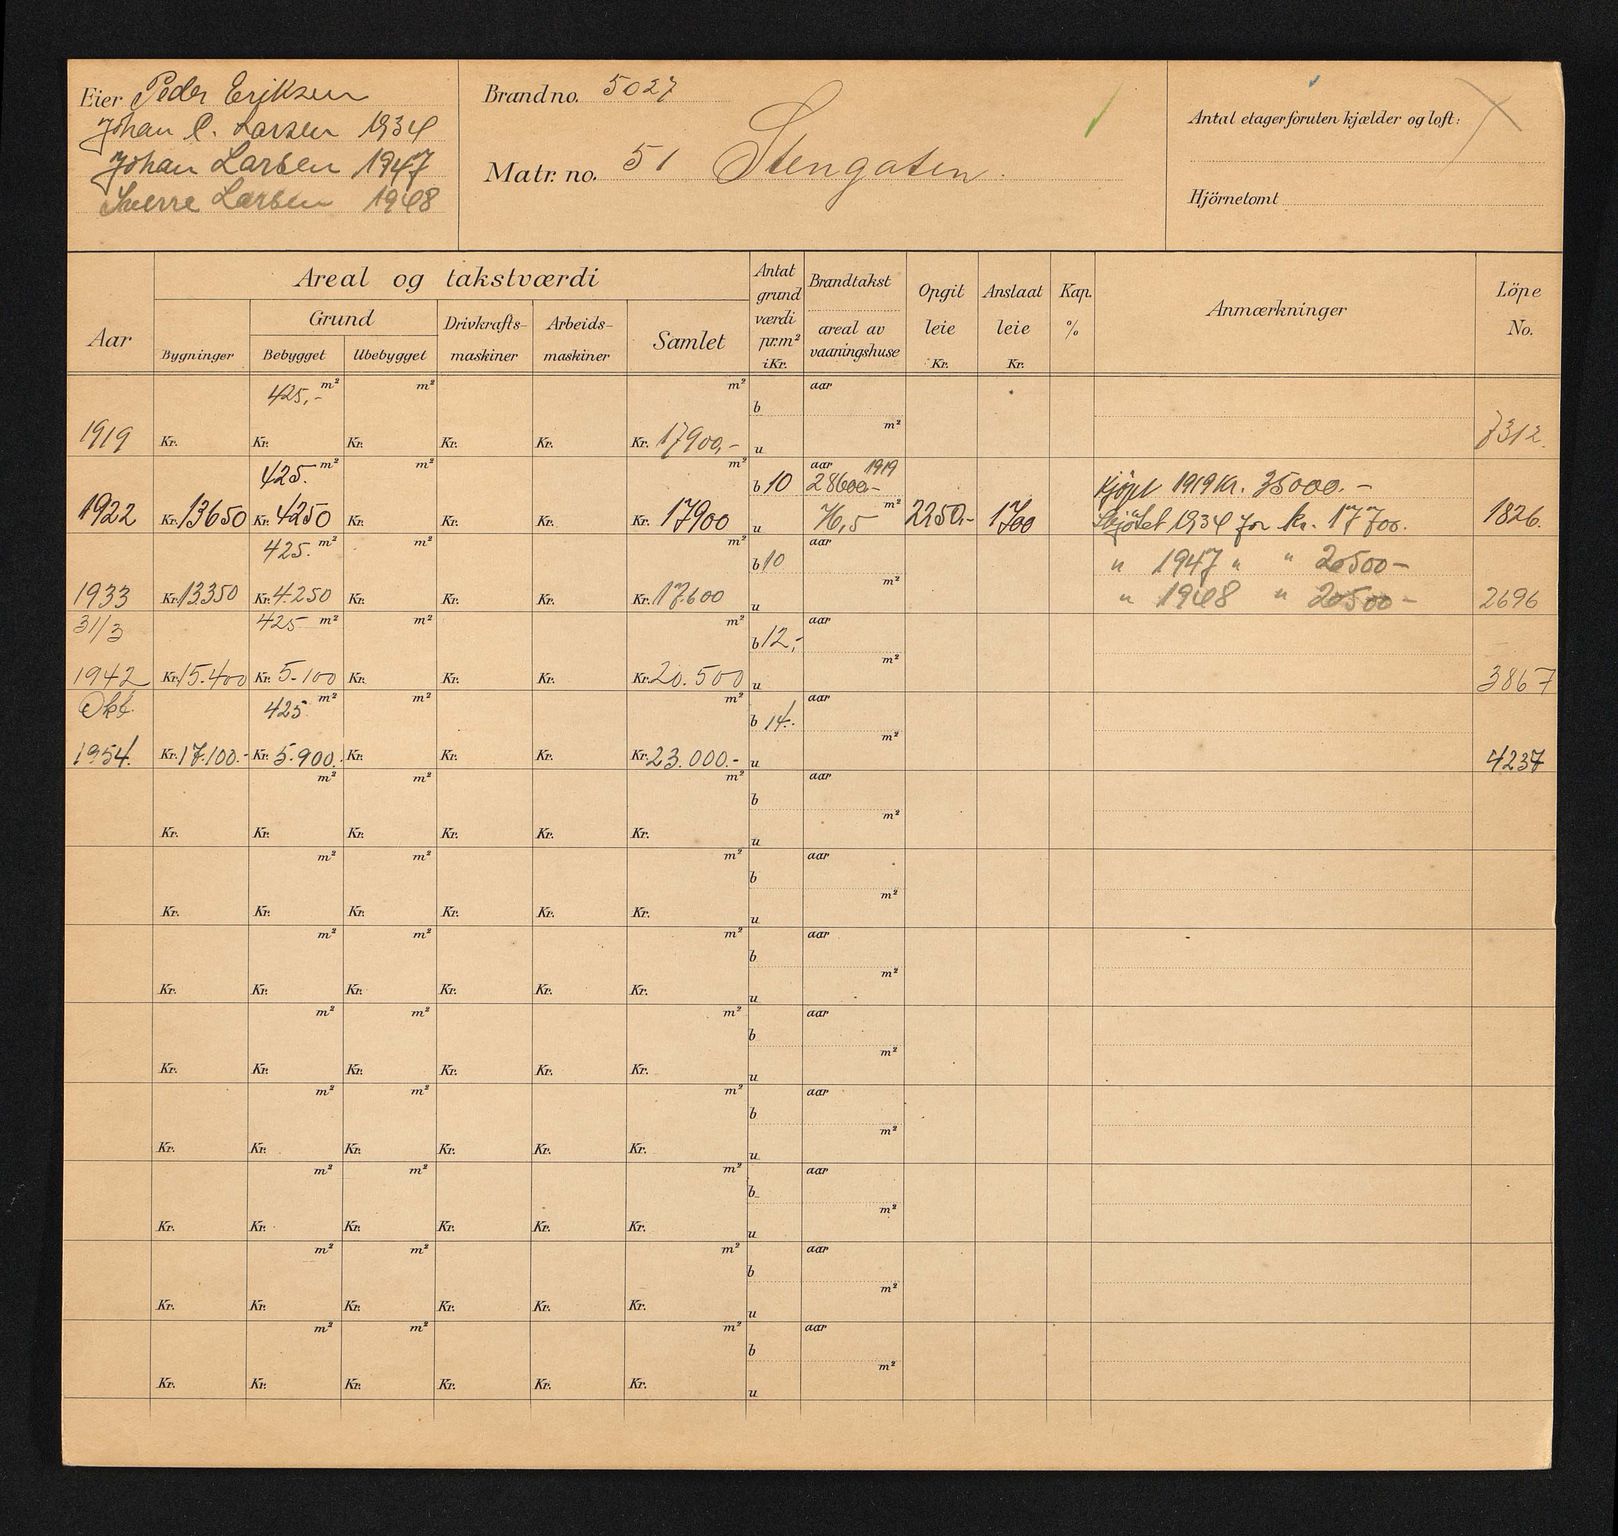 Eier Peder Eriksen
Johan C. Larsen 1934
Johan Larsen 1947
Sverre Larsen 1948
Brand no. 5027
Matr. no. 51 Stengaten.
Antal etager foruten kjælder og loft:
Hjörnetomt
Aar
Areal og takstværdi
Bygninger
Grund
Bebygget
Ubebygget
Drivkrafts-
maskiner
Arbeids-
maskiner
Samlet
Antat
grund
værdi
pr. m²
i Kr.
Brandtakst
areal av
vaaningshuse
Opgit
leie
Kr.
Anslaat
leie
Kr.
Kap.
%
Anmærkninger
Löpe
No.
425,- m² m² m² aar
b
m²
1919 Kr. Kr. Kr. Kr. Kr. Kr. 17900,- u 7312.
425. m² m² m² aar 1919
b 10 28600,- Kjöpt 1919 Kr. 35000.-
1922 Kr. 13650 Kr. 4250 Kr. Kr. Kr. Kr. 17900 u 76,5 m² 2250,- 1700 Skjötet 1934 for kr. 17700. 1826.
425. m² m² m² aar
b 10 " 1947 " " 20500-
m²
1933 Kr. 13350 Kr. 4250 Kr. Kr. Kr. Kr. 17600 u " 1948 " 20500- 2696
31/3 425 m² m² m² aar
b 12,-
m²
1942 Kr. 15.400 Kr. 5.100 Kr. Kr. Kr. Kr. 20.500 u 3867
Okt. 425 m² m² m² aar
b 14.-
m²
1954. Kr. 17.100.- Kr. 5.900. Kr. Kr. Kr. Kr. 23.000.- u 4237
m² m² m² aar
b
m²
Kr. Kr. Kr. Kr. Kr. Kr. u
m² m² m² aar
b
m²
Kr. Kr. Kr. Kr. Kr. Kr. u
m² m² m² aar
b
m²
Kr. Kr. Kr. Kr. Kr. Kr. u
m² m² m² aar
b
m²
Kr. Kr. Kr. Kr. Kr. Kr. u
m² m² m² aar
b
m²
Kr. Kr. Kr. Kr. Kr. Kr. u
m² m² m² aar
b
m²
Kr. Kr. Kr. Kr. Kr. Kr. u
m² m² m² aar
b
m²
Kr. Kr. Kr. Kr. Kr. Kr. u
m² m² m² aar
b
m²
Kr. Kr. Kr. Kr. Kr. Kr. u